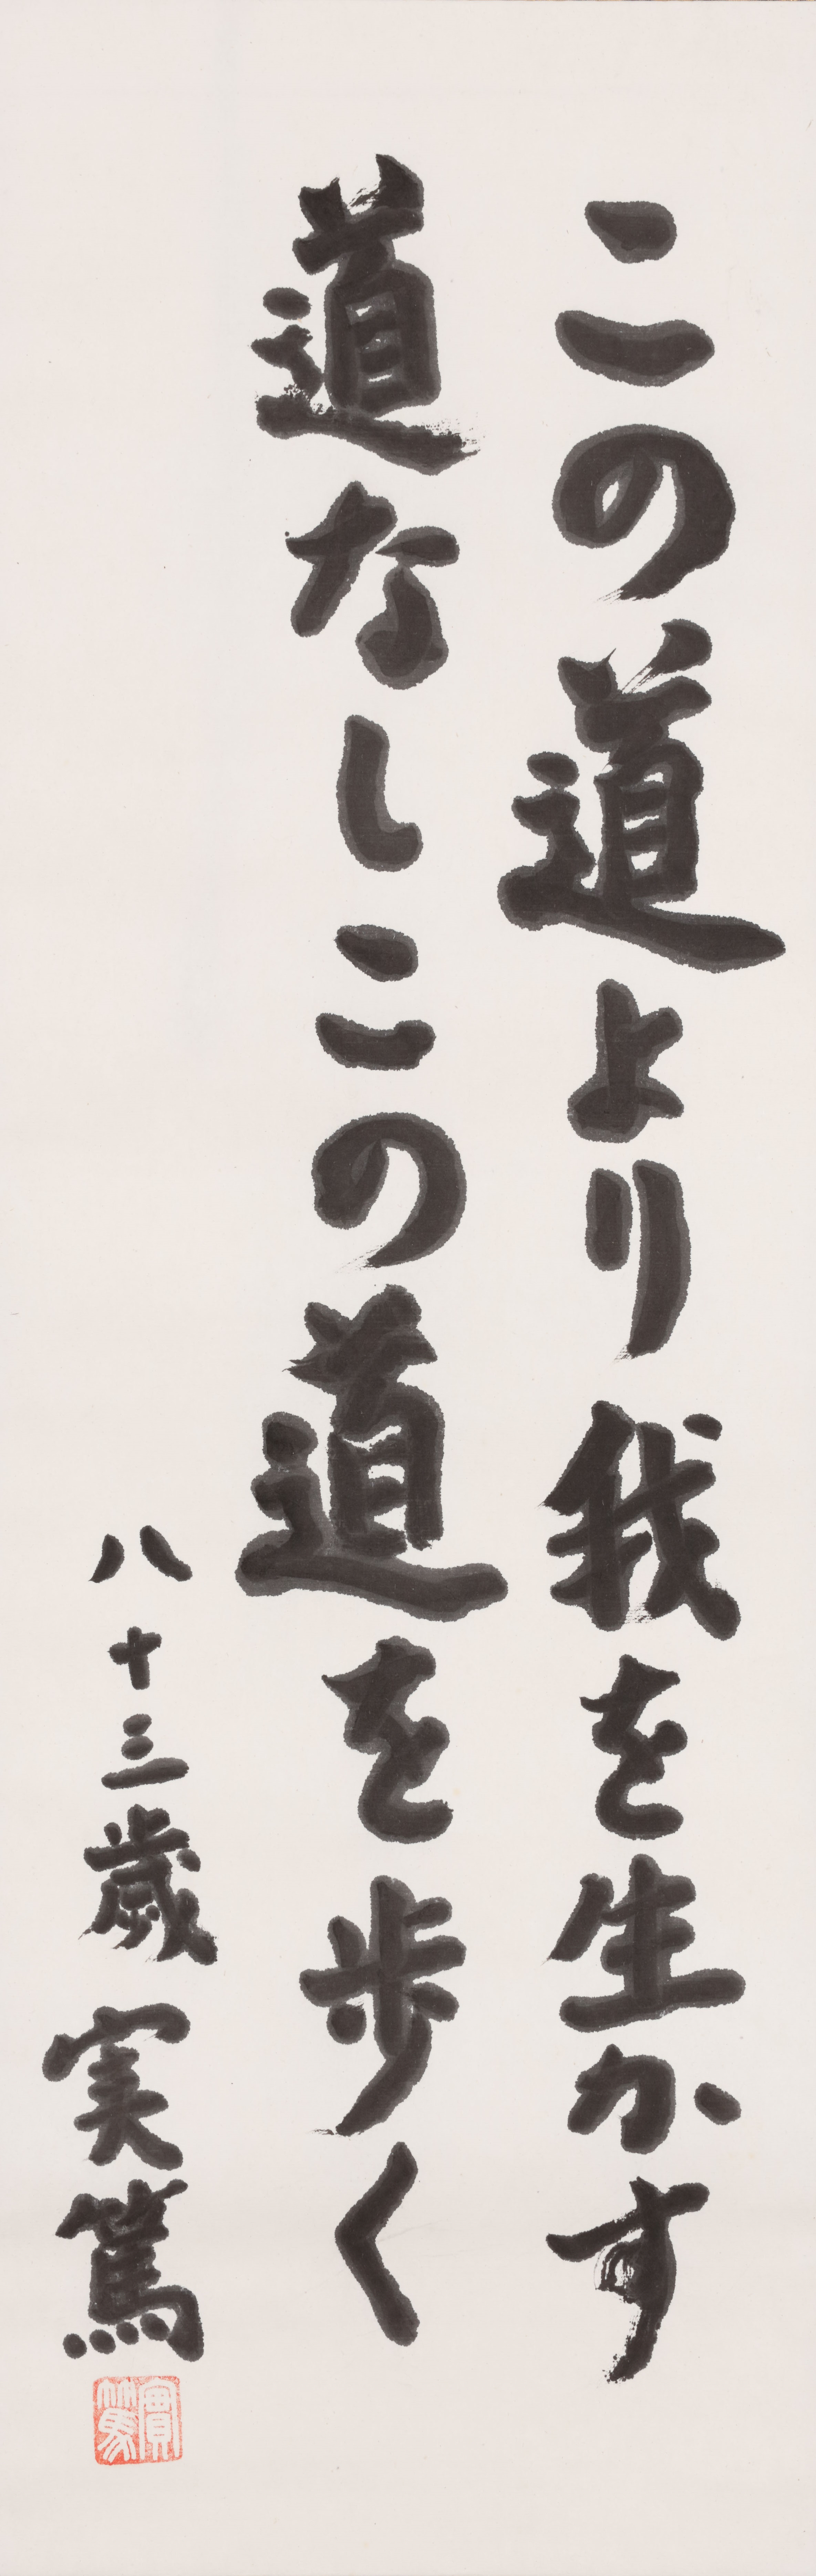 この道より我を生かす
道なしこの道を歩く
八十三歳 実篤
實篤